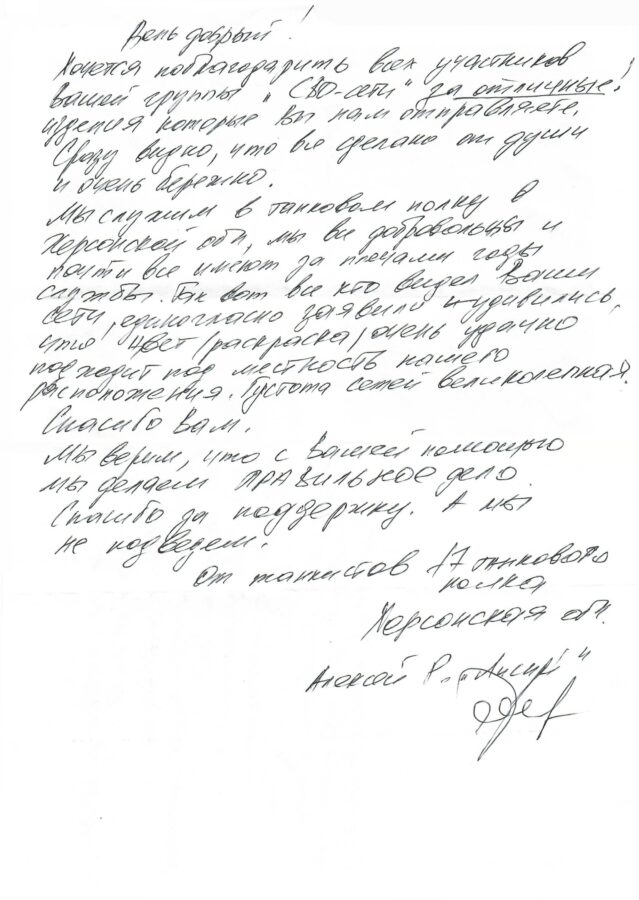 День добрый!
Хочется поблагодарить всех участников
Вашей группы "СВО-сети" за отличные!
изделия которые Вы нам отправляете.
Сразу видно, что все сделано от души
и очень бережно.
Мы служим в танковом полку в
Херсонской обл, мы все добровольцы и
почти все имеют за плечами годы
службы. Так вот все кто видел Ваши
сети, единогласно заявили и удивились,
что цвет /раскраска/ очень удачно
подходит под местность нашего
расположения. Густота сетей великолепная.
Спасибо Вам.
Мы верим, что с Вашей помощью
мы делаем ПРАВИЛЬНОЕ дело.
Спасибо за поддержку. А мы
не подведем.
От танкистов 17 танкового
полка
Херсонская обл.
Алексей Р.